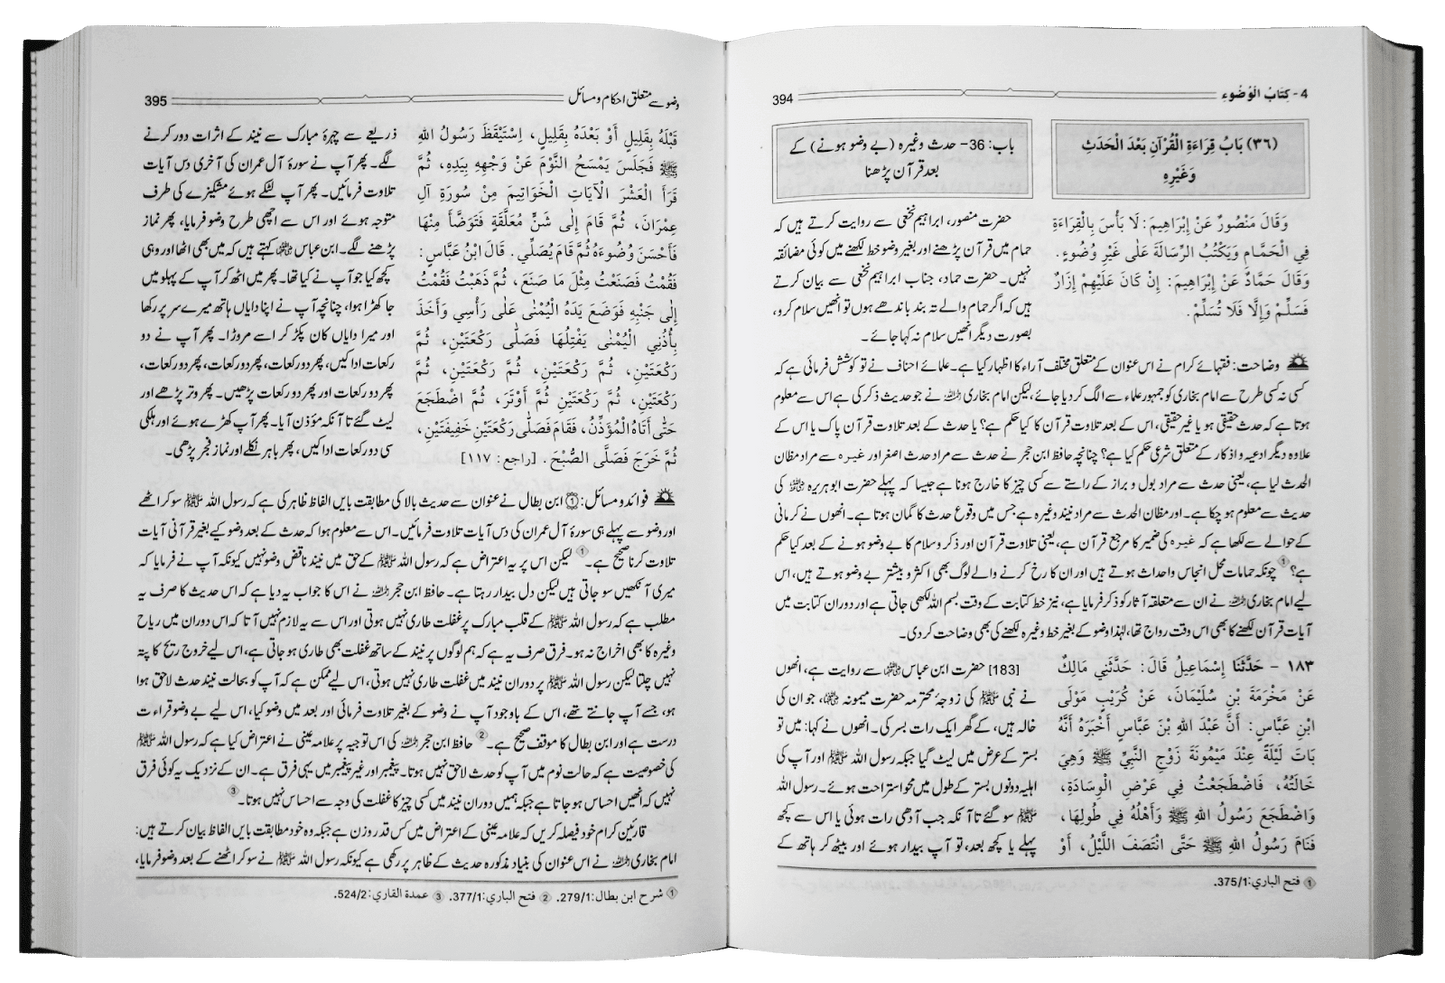 4 - كِتَابُ الْوُضُوءِ
394
(٣٦) بَابُ قِرَاءَةِ الْقُرْآنِ بَعْدَ الْحَدَثِ
وَغَيْرِهِ
باب: 36- حدث وغیرہ (بے وضو ہونے) کے
بعد قرآن پڑھنا
وَقَالَ مَنْصُورٌ عَنْ إِبْرَاهِيمَ: لَا بَأْسَ بِالْقِرَاءَةِ
فِي الْحَمَّامِ وَيَكْتُبُ الرِّسَالَةَ عَلَى غَيْرِ وُضُوءٍ.
وَقَالَ حَمَّادٌ عَنْ إِبْرَاهِيمَ: إِنْ كَانَ عَلَيْهِمْ إِزَارٌ
فَسَلِّمْ وَإِلَّا فَلَا تُسَلِّمْ.
حضرت منصور، ابراہیم نخعی سے روایت کرتے ہیں کہ
حمام میں قرآن پڑھنے اور بغیر وضو خط لکھنے میں کوئی مضائقہ
نہیں۔ حضرت حماد، جناب ابراہیم نخعی سے بیان کرتے
ہیں کہ اگر حمام والے تہ بند باندھے ہوں تو انھیں سلام کرو،
بصورت دیگر انھیں سلام نہ کہا جائے۔
وضاحت: فقہائے کرام نے اس عنوان کے متعلق مختلف آراء کا اظہار کیا ہے۔ علمائے احناف نے تو کوشش فرمائی ہے کہ
کسی نہ کسی طرح سے امام بخاری کو جمہور علماء سے الگ کر دیا جائے، لیکن امام بخاری رحمہ اللہ نے جو حدیث ذکر کی ہے اس سے معلوم
ہوتا ہے کہ حدث حقیقی ہو یا غیر حقیقی، اس کے بعد تلاوت قرآن کا کیا حکم ہے؟ یا حدث کے بعد تلاوت قرآن پاک یا اس کے
علاوہ دیگر ادعیہ و اذکار کے متعلق شرعی حکم کیا ہے؟ چنانچہ حافظ ابن حجر نے حدث سے مراد حدث اصغر اور غیرہ سے مراد مظان
الحدث لیا ہے، یعنی حدث سے مراد بول و براز کے راستے سے کسی چیز کا خارج ہونا ہے جیسا کہ پہلے حضرت ابو ہریرہ رضی اللہ عنہ کی
حدیث سے معلوم ہو چکا ہے۔ اور مظان الحدث سے مراد نیند وغیرہ ہے جس میں وقوع حدث کا گمان ہوتا ہے۔ انھوں نے کرمانی
کے حوالے سے لکھا ہے کہ غیرہ کی ضمیر کا مرجع قرآن ہے، یعنی تلاوت قرآن اور ذکر و سلام کا بے وضو ہونے کے بعد کیا حکم
ہے؟ ① چونکہ حمامات محل انجاس و احداث ہوتے ہیں اور ان کا رخ کرنے والے لوگ بھی اکثر و بیشتر بے وضو ہوتے ہیں، اس
لیے امام بخاری رحمہ اللہ نے ان سے متعلقہ آثار کو ذکر فرمایا ہے، نیز خط کتابت کے وقت بسم اللہ لکھی جاتی ہے اور دوران کتابت میں
آیات قرآن لکھنے کا بھی اس وقت رواج تھا، لہٰذا وضو کے بغیر خط وغیرہ لکھنے کی بھی وضاحت کر دی۔
١٨٣ - حَدَّثَنَا إِسْمَاعِيلُ قَالَ: حَدَّثَنِي مَالِكٌ
عَنْ مَخْرَمَةَ بْنِ سُلَيْمَانَ، عَنْ كُرَيْبٍ مَوْلَى
ابْنِ عَبَّاسٍ: أَنَّ عَبْدَ اللهِ بْنَ عَبَّاسٍ أَخْبَرَهُ أَنَّهُ
بَاتَ لَيْلَةً عِنْدَ مَيْمُونَةَ زَوْجِ النَّبِيِّ ﷺ وَهِيَ
خَالَتُهُ، فَاضْطَجَعْتُ فِي عَرْضِ الْوِسَادَةِ،
وَاضْطَجَعَ رَسُولُ اللهِ ﷺ وَأَهْلُهُ فِي طُولِهَا،
فَنَامَ رَسُولُ اللهِ ﷺ حَتَّى انْتَصَفَ اللَّيْلُ، أَوْ
[183] حضرت ابن عباس رضی اللہ عنہما سے روایت ہے، انھوں
نے نبی ﷺ کی زوجۂ محترمہ حضرت میمونہ رضی اللہ عنہا، جو ان کی
خالہ ہیں، کے گھر ایک رات بسر کی۔ انھوں نے کہا: میں تو
بستر کے عرض میں لیٹ گیا جبکہ رسول اللہ ﷺ اور آپ کی
اہلیہ دونوں بستر کے طول میں محو استراحت ہوئے۔ رسول اللہ
ﷺ سو گئے تا آنکہ جب آدھی رات ہوئی یا اس سے کچھ
پہلے یا کچھ بعد، تو آپ بیدار ہوئے اور بیٹھ کر ہاتھ کے
① فتح الباري: 375/1.
وضو سے متعلق احکام و مسائل
395
قَبْلَهُ بِقَلِيلٍ أَوْ بَعْدَهُ بِقَلِيلٍ، اِسْتَيْقَظَ رَسُولُ اللهِ
ﷺ فَجَلَسَ يَمْسَحُ النَّوْمَ عَنْ وَجْهِهِ بِيَدِهِ، ثُمَّ
قَرَأَ الْعَشْرَ الْآيَاتِ الْخَوَاتِيمَ مِنْ سُورَةِ آلِ
عِمْرَانَ، ثُمَّ قَامَ إِلَى شَنٍّ مُعَلَّقَةٍ فَتَوَضَّأَ مِنْهَا
فَأَحْسَنَ وُضُوءَهُ ثُمَّ قَامَ يُصَلِّي. قَالَ ابْنُ عَبَّاسٍ:
فَقُمْتُ فَصَنَعْتُ مِثْلَ مَا صَنَعَ، ثُمَّ ذَهَبْتُ فَقُمْتُ
إِلَى جَنْبِهِ فَوَضَعَ يَدَهُ الْيُمْنَى عَلَى رَأْسِي وَأَخَذَ
بِأُذُنِي الْيُمْنَى يَفْتِلُهَا فَصَلَّى رَكْعَتَيْنِ، ثُمَّ
رَكْعَتَيْنِ، ثُمَّ رَكْعَتَيْنِ، ثُمَّ رَكْعَتَيْنِ، ثُمَّ
رَكْعَتَيْنِ، ثُمَّ رَكْعَتَيْنِ ثُمَّ أَوْتَرَ، ثُمَّ اضْطَجَعَ
حَتَّى أَتَاهُ الْمُؤَذِّنُ، فَقَامَ فَصَلَّى رَكْعَتَيْنِ خَفِيفَتَيْنِ،
ثُمَّ خَرَجَ فَصَلَّى الصُّبْحَ. [راجع: ١١٧]
ذریعے سے چہرۂ مبارک سے نیند کے اثرات دور کرنے
لگے۔ پھر آپ نے سورۂ آل عمران کی آخری دس آیات
تلاوت فرمائیں۔ پھر آپ لٹکے ہوئے مشکیزے کی طرف
متوجہ ہوئے اور اس سے اچھی طرح وضو فرمایا، پھر نماز
پڑھنے لگے۔ ابن عباس رضی اللہ عنہما کہتے ہیں کہ میں بھی اٹھا اور وہی
کچھ کیا جو آپ نے کیا تھا۔ پھر میں اٹھ کر آپ کے پہلو میں
جا کھڑا ہوا، چنانچہ آپ نے اپنا دایاں ہاتھ میرے سر پر رکھا
اور میرا دایاں کان پکڑ کر اسے مروڑا۔ پھر آپ نے دو
رکعات ادا کیں، پھر دو رکعات، پھر دو رکعات، پھر دو رکعات،
پھر دو رکعات اور پھر دو رکعات پڑھیں۔ پھر وتر پڑھے اور
لیٹ گئے تا آنکہ مؤذن آیا۔ پھر آپ کھڑے ہوئے اور ہلکی
سی دو رکعات ادا کیں، پھر باہر نکلے اور نماز فجر پڑھی۔
فوائد و مسائل: ① ابن بطال نے عنوان سے حدیث بالا کی مطابقت بایں الفاظ ظاہر کی ہے کہ رسول اللہ ﷺ سو کر اٹھے
اور وضو سے پہلے ہی سورۂ آل عمران کی دس آیات تلاوت فرمائیں۔ اس سے معلوم ہوا کہ حدث کے بعد وضو کیے بغیر قرآنی آیات
تلاوت کرنا صحیح ہے۔ ① لیکن اس پر یہ اعتراض ہے کہ رسول اللہ ﷺ کے حق میں نیند ناقض وضو نہیں کیونکہ آپ نے فرمایا کہ
میری آنکھیں سو جاتی ہیں لیکن دل بیدار رہتا ہے۔ حافظ ابن حجر رحمہ اللہ نے اس کا جواب یہ دیا ہے کہ اس حدیث کا صرف یہ
مطلب ہے کہ رسول اللہ ﷺ کے قلب مبارک پر غفلت طاری نہیں ہوتی اور اس سے یہ لازم نہیں آتا کہ اس دوران میں ریاح
وغیرہ کا بھی اخراج نہ ہو۔ فرق صرف یہ ہے کہ ہم لوگوں پر نیند کے ساتھ غفلت بھی طاری ہو جاتی ہے، اس لیے خروج ریح کا پتہ
نہیں چلتا لیکن رسول اللہ ﷺ پر دوران نیند میں غفلت طاری نہیں ہوتی، اس لیے ممکن ہے کہ آپ کو بحالت نیند حدث لاحق ہوا
ہو، جسے آپ جانتے تھے، اس کے باوجود آپ نے وضو کے بغیر تلاوت فرمائی اور بعد میں وضو کیا، اس لیے بے وضو قراءت
درست ہے اور ابن بطال کا موقف صحیح ہے۔ ② حافظ ابن حجر رحمہ اللہ کی اس توجیہ پر علامہ عینی نے اعتراض کیا ہے کہ رسول اللہ ﷺ
کی خصوصیت ہے کہ حالت نوم میں آپ کو حدث لاحق نہیں ہوتا۔ پیغمبر اور غیر پیغمبر میں یہی فرق ہے۔ ان کے نزدیک یہ کوئی فرق
نہیں کہ انھیں احساس ہو جاتا ہے جبکہ ہمیں دوران نیند میں کسی چیز کا غفلت کی وجہ سے احساس نہیں ہوتا۔ ③
قارئین کرام خود فیصلہ کریں کہ علامہ عینی کے اعتراض میں کس قدر وزن ہے جبکہ وہ خود مطابقت بایں الفاظ بیان کرتے ہیں:
امام بخاری رحمہ اللہ نے اس عنوان کی بنیاد مذکورہ حدیث کے ظاہر پر رکھی ہے کیونکہ رسول اللہ ﷺ نے سو کر اٹھنے کے بعد وضو فرمایا،
① شرح ابن بطال: 279/1. ② فتح الباري: 377/1. ③ عمدة القاري: 524/2.